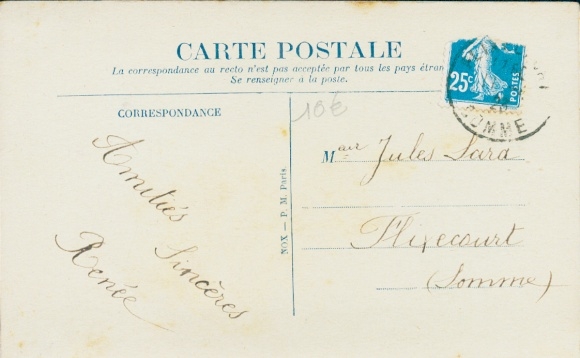 CARTE POSTALE
La correspondance au recto n'est pas acceptée par tous les pays étran
Se renseigner à la poste.
25c
POSTES
SOMME
CORRESPONDANCE
10€
Amitiés
Sincères
Renée
NOX — P. M. Paris.
Mʳ Jules Sara
Flixecourt
(Somme)